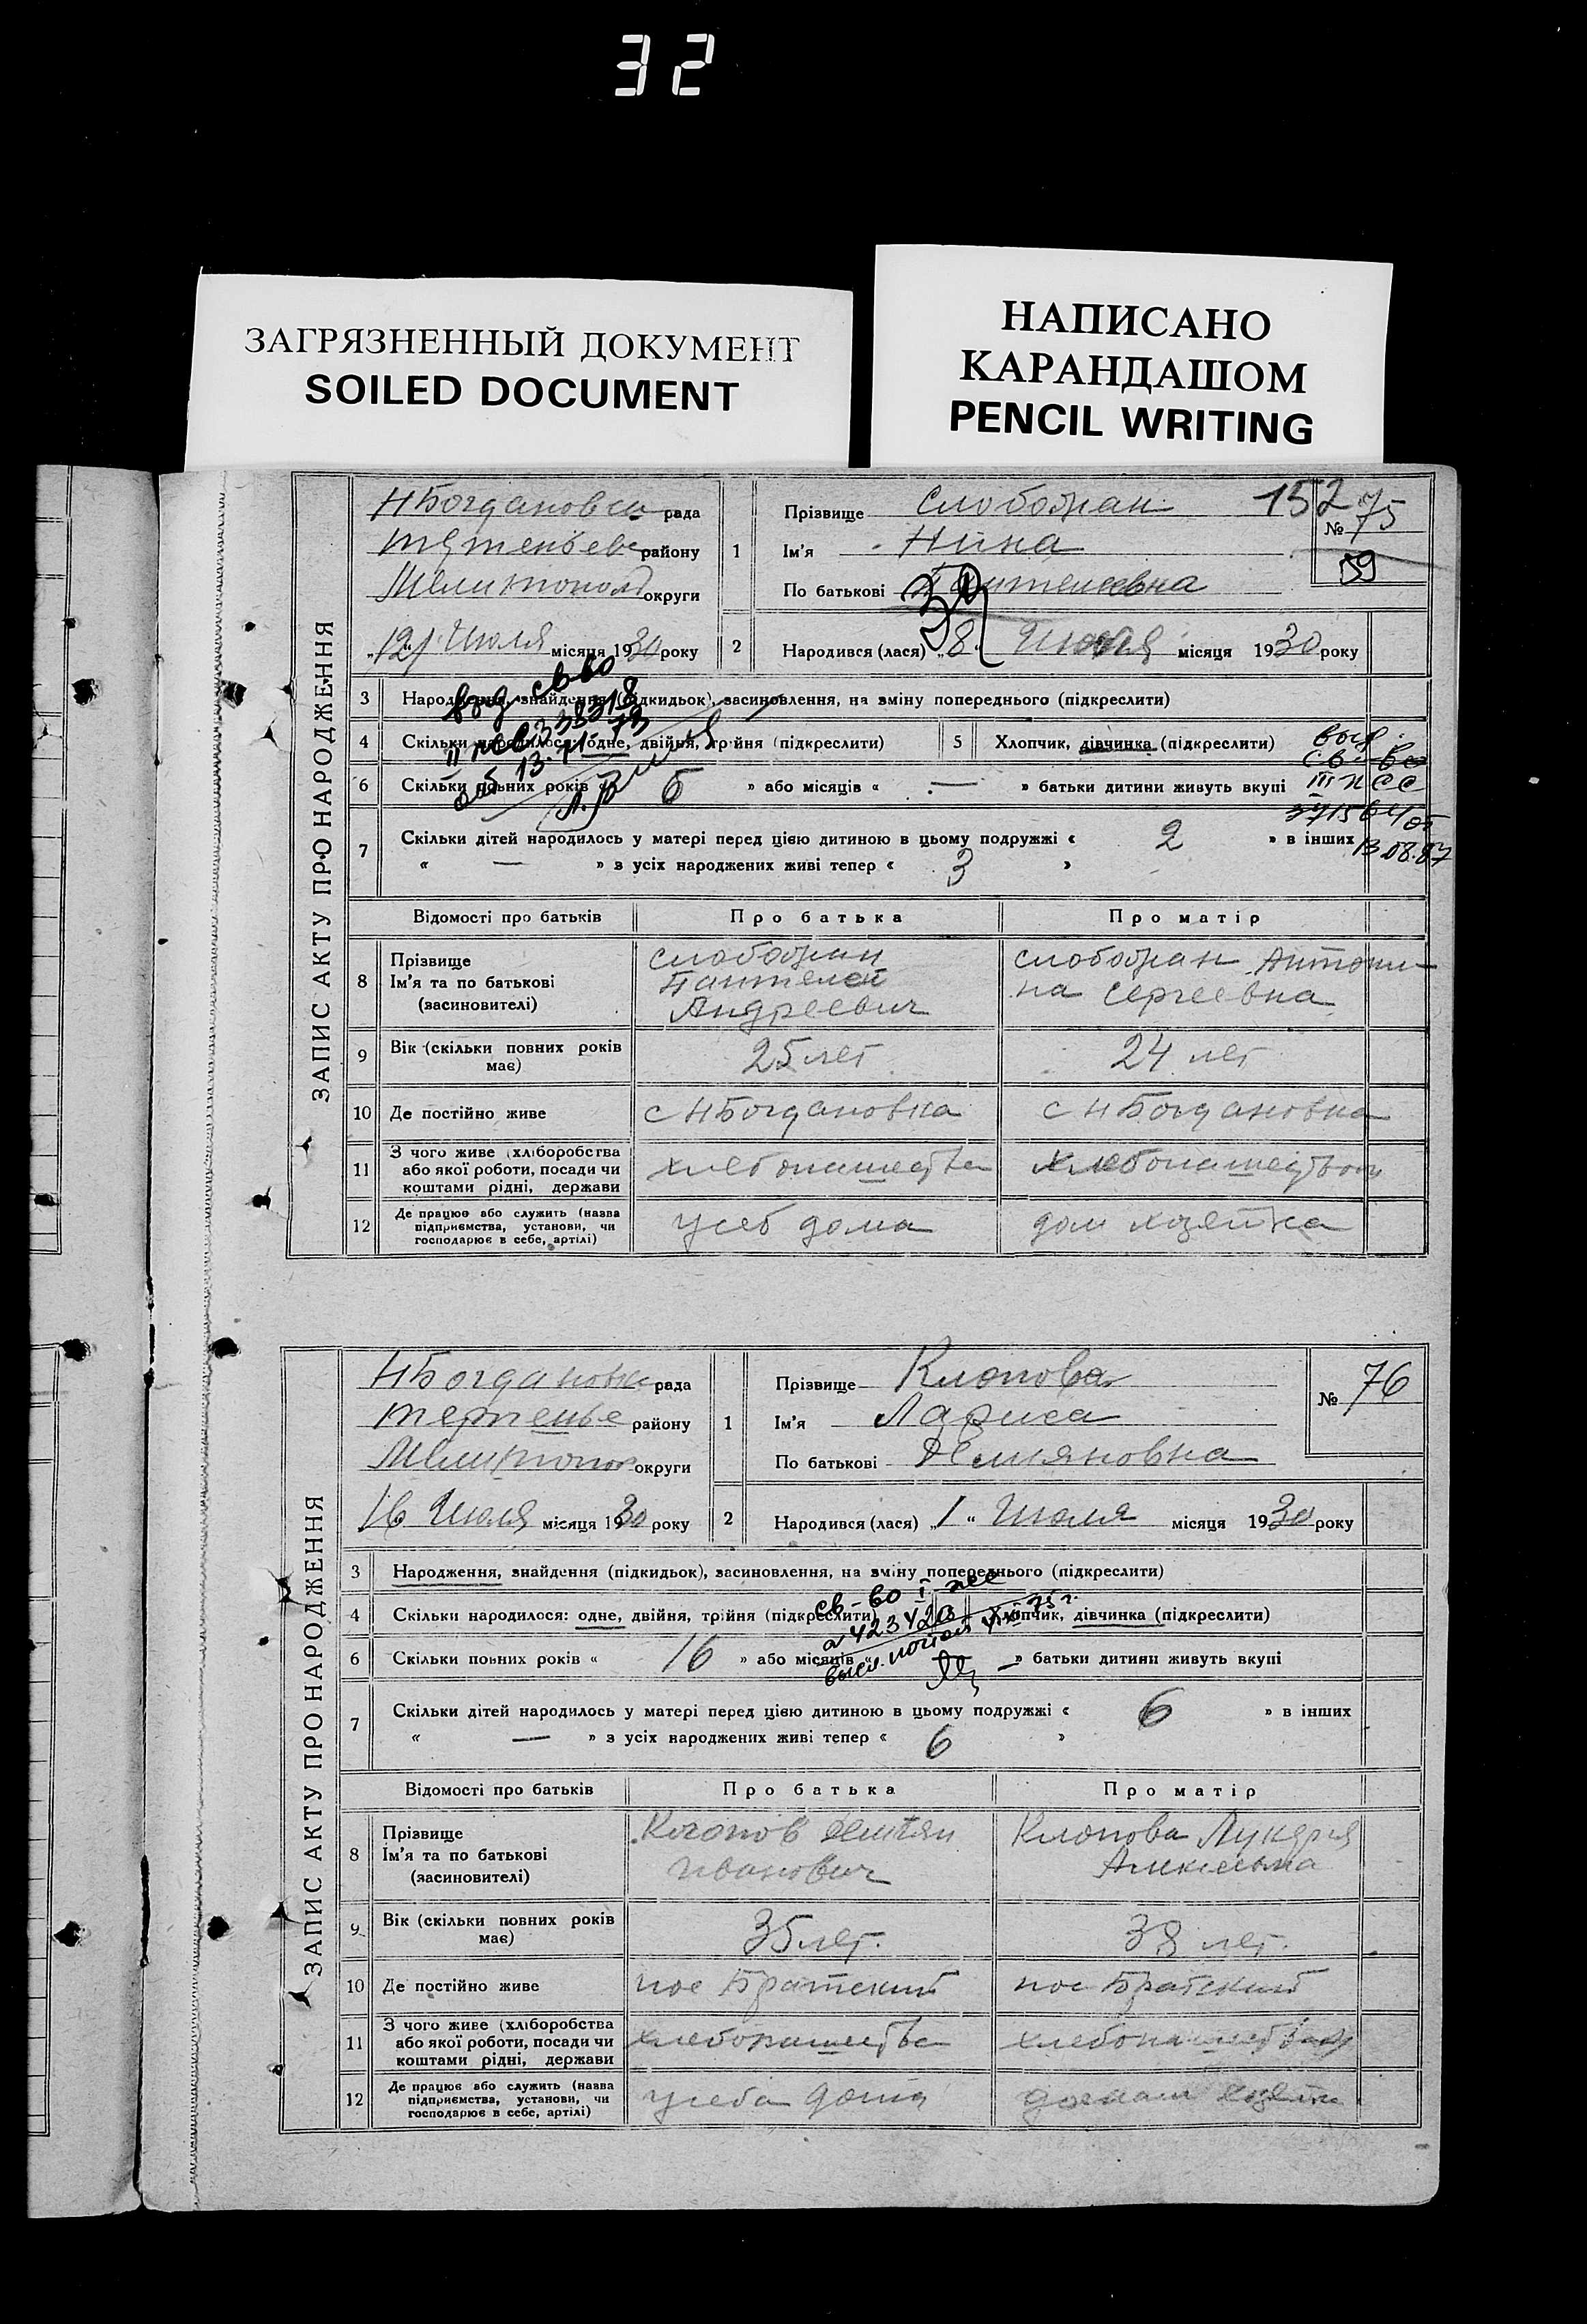 32
ЗАГРЯЗНЕННЫЙ ДОКУМЕНТ
SOILED DOCUMENT
НАПИСАНО
КАРАНДАШОМ
PENCIL WRITING
ЗАПИС АКТУ ПРО НАРОДЖЕННЯ
Н Богдановка рада
району
Мелитополь округи
"12" Июля місяця 1930 року
1
Прізвище Слободян
Ім'я Нина
По батькові
152
№ 75
59
2 Народився (лася) „8" місяця 1930 року
3 Народження, знайдення (підкидьок), засиновлення, на зміну попереднього (підкреслити)
4 Скільки народилося: одне, двійня, трійня (підкреслити)
5 Хлопчик, дівчинка (підкреслити)
6 Скільки повних років « 6 » або місяців « — » батьки дитини живуть вкупі
св-во
13.11.73
III
13.08.87
7 Скільки дітей народилось у матері перед цією дитиною в цьому подружжі « 2 » в інших
« — » з усіх народжених живі тепер « 3 »
Відомості про батьків Про батька Про матір
8 Прізвище
Ім'я та по батькові
(засиновителі)
Слободян
Пантелей
Андреевич
Слободян Антони-
на Сергеевна
9 Вік (скільки повних років має) 25 лет 24 лет
10 Де постійно живе с Н Богдановка с Н Богдановка
11 З чого живе (хліборобства
або якої роботи, посади чи
коштами рідні, держави
хлебопашества хлебопашеством
12 Де працює або служить (назва
підприємства, установи, чи
господарює в себе, артілі)
у себ дома дом хозяйка
ЗАПИС АКТУ ПРО НАРОДЖЕННЯ
Н Богдановка рада
терпенье району
Мелитопол округи
16 Июля місяця 1930 року
1
Прізвище Клопова
Ім'я Лариса
По батькові Демяновна
№ 76
2 Народився (лася) „1" Июля місяця 1930 року
3 Народження, знайдення (підкидьок), засиновлення, на зміну попереднього (підкреслити)
4 Скільки народилося: одне, двійня, трійня (підкреслити)
Хлопчик, дівчинка (підкреслити)
св-во I-
6 Скільки повних років « 16 » або місяців « — » батьки дитини живуть вкупі
7 Скільки дітей народилось у матері перед цією дитиною в цьому подружжі « 6 » в інших
« — » з усіх народжених живі тепер « 6 »
Відомості про батьків Про батька Про матір
8 Прізвище
Ім'я та по батькові
(засиновителі)
Клопов Демян
Иванович
Клопова Лукерия
9 Вік (скільки повних років має) 35 лет. 38 лет.
10 Де постійно живе пос Братский пос Братский
11 З чого живе (хліборобства
або якої роботи, посади чи
коштами рідні, держави
хлебопашества хлебопашеством
12 Де працює або служить (назва
підприємства, установи, чи
господарює в себе, артілі)
у себа дома